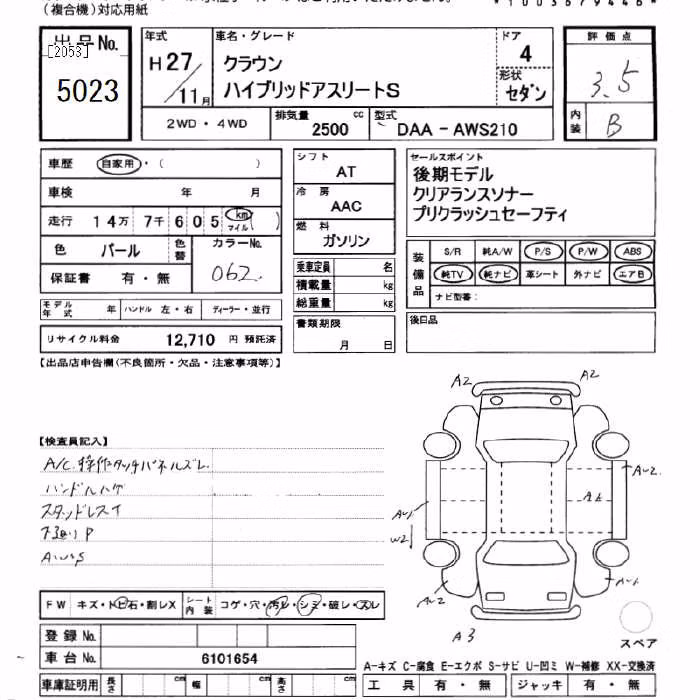 (複合機)対応用紙
*1003679446*
出品No.
[2053]
5023
年式
H27/11月
車名・グレード
クラウン
ハイブリッドアスリートS
ドア
4
形状
セダン
評価点
3.5
内装
B
2WD・4WD
排気量
2500 cc
型式
DAA-AWS210
車歴 自家用・( )
車検 年 月
走行 14万 7千 605 km マイル ( )
色 パール 色替
カラーNo.
062
保証書 有・無
シフト
AT
冷房
AAC
燃料
ガソリン
乗車定員 名
積載量 kg
総重量 kg
セールスポイント
後期モデル
クリアランスソナー
プリクラッシュセーフティ
装備品
S/R 純A/W P/S P/W ABS
純TV 純ナビ 革シート 外ナビ エアB
ナビ型番:
モデル年式 年 ハンドル 左・右 ディーラー・並行
リサイクル料金 12,710 円 預託済
書類期限
月 日
後日品
【出品店申告欄(不良箇所・欠品・注意事項等)】
【検査員記入】
A/C操作タッチパネルズレ
ハンドルハゲ
スタッドレス
A2
A2
AU2
AU1
W2
AU2
A3
スペア
FW キズ・トビ石・割レX シート内装 コゲ・穴・汚レ・シミ・破レ・スレ
登録No.
車台No. 6101654
車庫証明用 長さ cm 幅 cm 高さ cm
A-キズ C-腐食 E-エクボ S-サビ U-凹ミ W-補修 XX-交換済
工具 有・無 ジャッキ 有・無